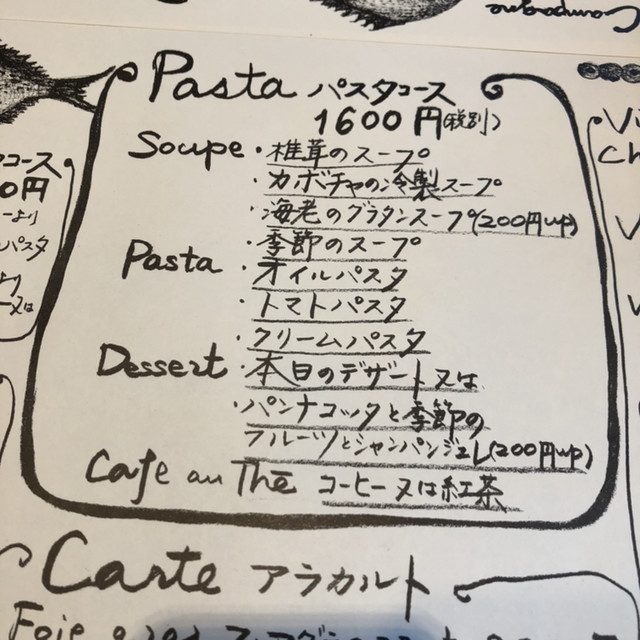 Campagne
Pasta パスタコース
1600円(税別)
Soupe ・椎茸のスープ
・カボチャの冷製スープ
・海老のグラタンスープ(200円up)
・季節のスープ
Pasta ・オイルパスタ
・トマトパスタ
・クリームパスタ
Dessert ・本日のデザート又は
・パンナコッタと季節の
フルーツとシャンパンジュレ(200円up)
Cafe au Thé コーヒー又は紅茶
コース
0円
パスタ
Carte アラカルト
Foie